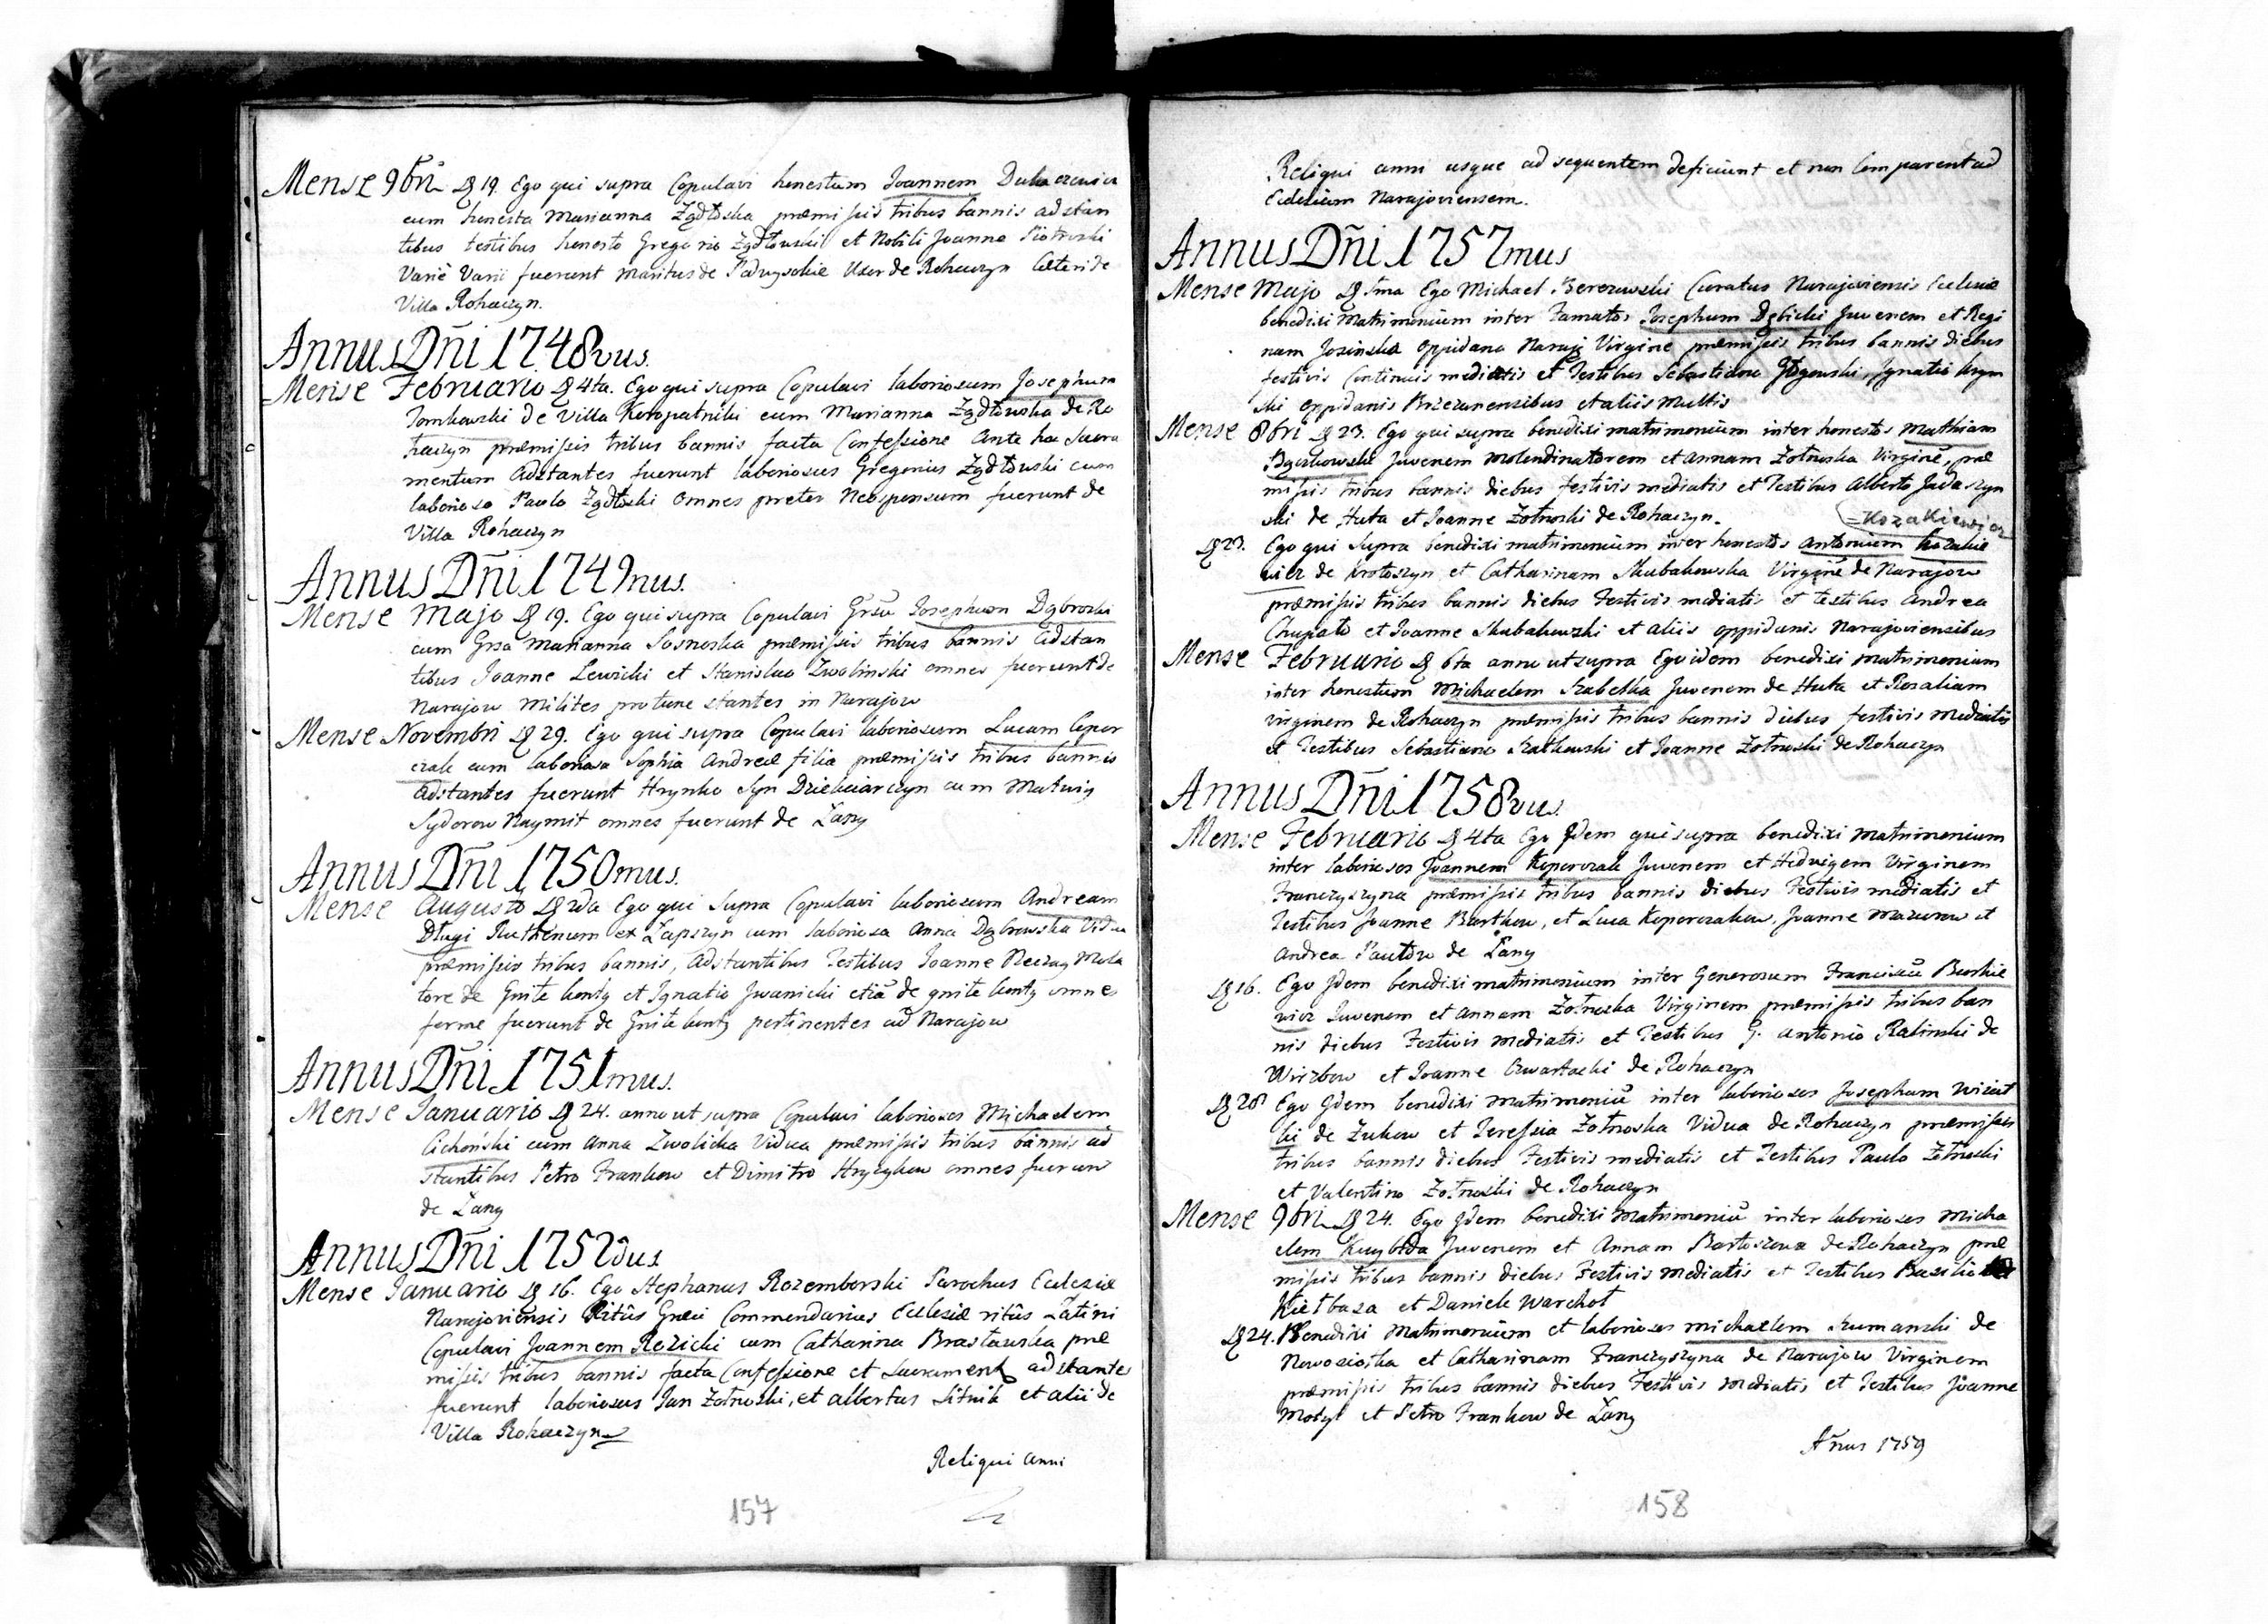 Mense 9bri D 19. Ego qui supra Copulavi honestum Joannem
cum honesta Marianna Żądłoska præmissis tribus bannis adstan
tibus testibus honesto Gregorio Żądłowski et Nobili Joanne Piotroski
Variè Varii fuerunt maritus de Podwysokie Uxor de Rohaczyn Cæteri de
Villa Rohaczyn.
Annus Dñi 1748vus.
Mense Februario D 4ta. Ego qui supra Copulavi laboriosum Josephum
Tomkowski de Villa Koropatniki cum Marianna Żądłowska de Ro
haczyn præmissis tribus bannis facta Confessione Ante hoc Sacra
mentum Adstantes fuerunt laboriosus Gregorius Żądłowski cum
laborioso Paulo Żądłoski Omnes preter Neosponsum fuerunt de
Villa Rohaczyn
Annus Dñi 1749nus.
Mense Majo D 19. Ego qui supra Copulavi Grsũ Josephum Dąbroski
cum Grsa Marianna Sosnoska præmissis tribus bannis Adstan
tibus Joanne Lewicki et Stanislao Zwolinski omnes fuerunt de
Narajow milites protunc stantes in Narajow
Mense Novembri D 29. Ego qui supra Copulavi laboriosum Lucam Copor
czak cum laboriosa Sophia Andreæ filia præmissis tribus bannis
Adstantes fuerunt Hrynko Syn cum Matwiy
Sydorow Naymit omnes fuerunt de Łany
Annus Dñi 1750mus.
Mense Augusto D 2da Ego qui supra Copulavi laboriosum Andream
Długi Ruthenum ex Łapszyn cum laboriosa Anna Dąbrowska Vidua
præmissis tribus bannis, Adstantibus Testibus Joanne Meczny Mola
tore de Gniłe konty et Ignatio Jwanicki etiã de gniłe konty omnes
ferme fuerunt de Gniłe konty pertinentes ad Narajow
Annus Dñi 1751mus.
Mense Januario D 24. anno ut supra Copulavi laboriosos Michaelem
Cichoński cum Anna Zwolicka Vidua præmissis tribus bannis ad
stantibus Petro Frankow et Dimitro Hrycykow omnes fuerunt
de Łany
Annus Dñi 1752dus
Mense Januario D 16. Ego Stephanus Rozemborski Parochus Eclesiæ
Narajoviensis Ritûs Græci Commendarius Ecclesiæ ritûs Latini
Copulavi Joannem Rezicki cum Catharina Brasławska præ
missis tribus bannis facta Confessione et Sacramento adstantes
fuerunt laboriosus Jan Zotnoski, et albertus Sitnik et alii de
Villa Rohaczyn
Religui anni
157
Religui anni usque ad sequentem deficiunt et non Comparent ad
Eclesiam Narajoviensem.
Annus Dñi 1757mus
Mense Majo D 1ma Ego Michael Berezowski Curatus Narajoviensis Eclesiæ
benedixi Matrimonium inter Famatos Josephum Dębicki Juvenem et Regi
nam Josinska oppidana Naraj. Virgine præmissis tribus bannis diebus
festivis Continuis mediatis et Testibus Sebastiano Ignatio
ski oppidanis Brzezanensibus et aliis multis
Mense 8bri D 23. Ego qui supra benedixi matrimonium inter honestos Mathiam
Juvenem molendinatorem et Annam Zotnoska Virginẽ, præ
missis tribus bannis diebus festivis mediatis et Testibus Alberto Judaszyn
ski de Huta et Joanne Zotnoski de Rohaczyn.
=Kozakiewicz
D 23. Ego qui supra benedixi matrimonium inter honestos Antonium Kozakie
wicz de Krotoszyn et Catharinam Skubakowska Virginẽ de Narajow
præmissis tribus bannis diebus Festivis mediatis et testibus Andrea
Chupało et Joanne Skubakowski et aliis oppidanis Narajoviensibus
Mense Februario D 6ta anno ut supra Ego idem benedixi matrimonium
inter honestum Michaelem Szabelka Juvenem de Huta et Rosaliam
virginem de Rohaczyn præmissis tribus bannis diebus festivis mediatis
et Testibus Sebastiano Szatkowski et Joanne Zotnoski de Rohaczyn
Annus Dñi 1758vus.
Mense Februario D 4ta Ego Idem qui supra benedixi Matrimonium
inter laboriosos Joannem Koporczak Juvenem et Hedvigem Virginem
Franczyszyna præmissis tribus bannis diebus Festivis mediatis et
Testibus Joanne Bartkow, et Luca Koporczakow, Joanne Mazurow et
Andrea Pautow de Łany
D 16. Ego Idem benedixi matrimonium inter Generosum Franciscũ Burkie
wicz Juvenem et Annam Zotnoska Virginem præmissis tribus ban
nis diebus Festivis mediatis et Testibus G. Antonio Ralinski de
Wirzbow et Joanne Czwartacki de Rohaczyn
D 20 Ego Idem benedixi matrimoniũ inter laboriosos Josephum Wisat
ki de Zukow et Teressia Zotnoska Vidua de Rohaczyn præmissis
tribus bannis diebus Festivis mediatis et Testibus Paulo Zotnoski
et Valentino Zotnoski de Rohaczyn
Mense 9bri D 24. Ego Idem benedixi Matrimoniũ inter laboriosos Micha
elem Kuybida Juvenem et Annam Bartoszowa de Rohaczyn præ
missis tribus bannis diebus Festivis mediatis et Testibus Basilio
Kiełbasa et Daniele Warchoł
D 24. Benedixi Matrimonium et laboriosos Michaelem Szumanski de
Nowosiołka et Catharinam Franczyszyna de Narajow Virginem
præmissis tribus bannis diebus Festivis mediatis et Testibus Joanne
Motyl et Petro Frankow de Łany
Añus 1759
158